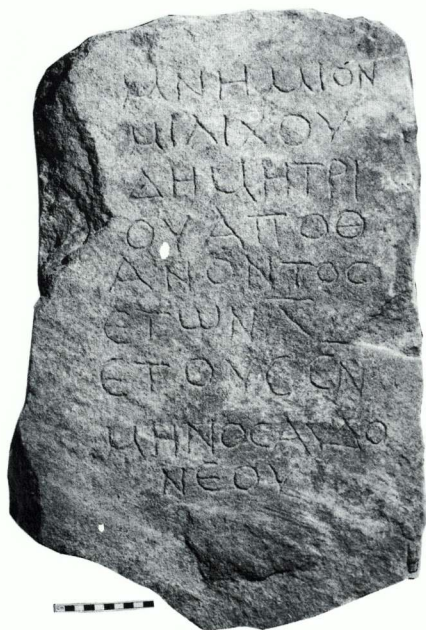 ΜΝΗΜΙΟΝ
ΜΙΛΙΧΟΥ
ΔΗΜΗΤΡΙ
ΟΥ ΑΠΟΘ
ΑΝΟΝΤΟC
ΕΤΩΝ
ΕΤΟΥC CΝ
ΜΗΝΟC ΑΥΔΟ
ΝΕΟΥ